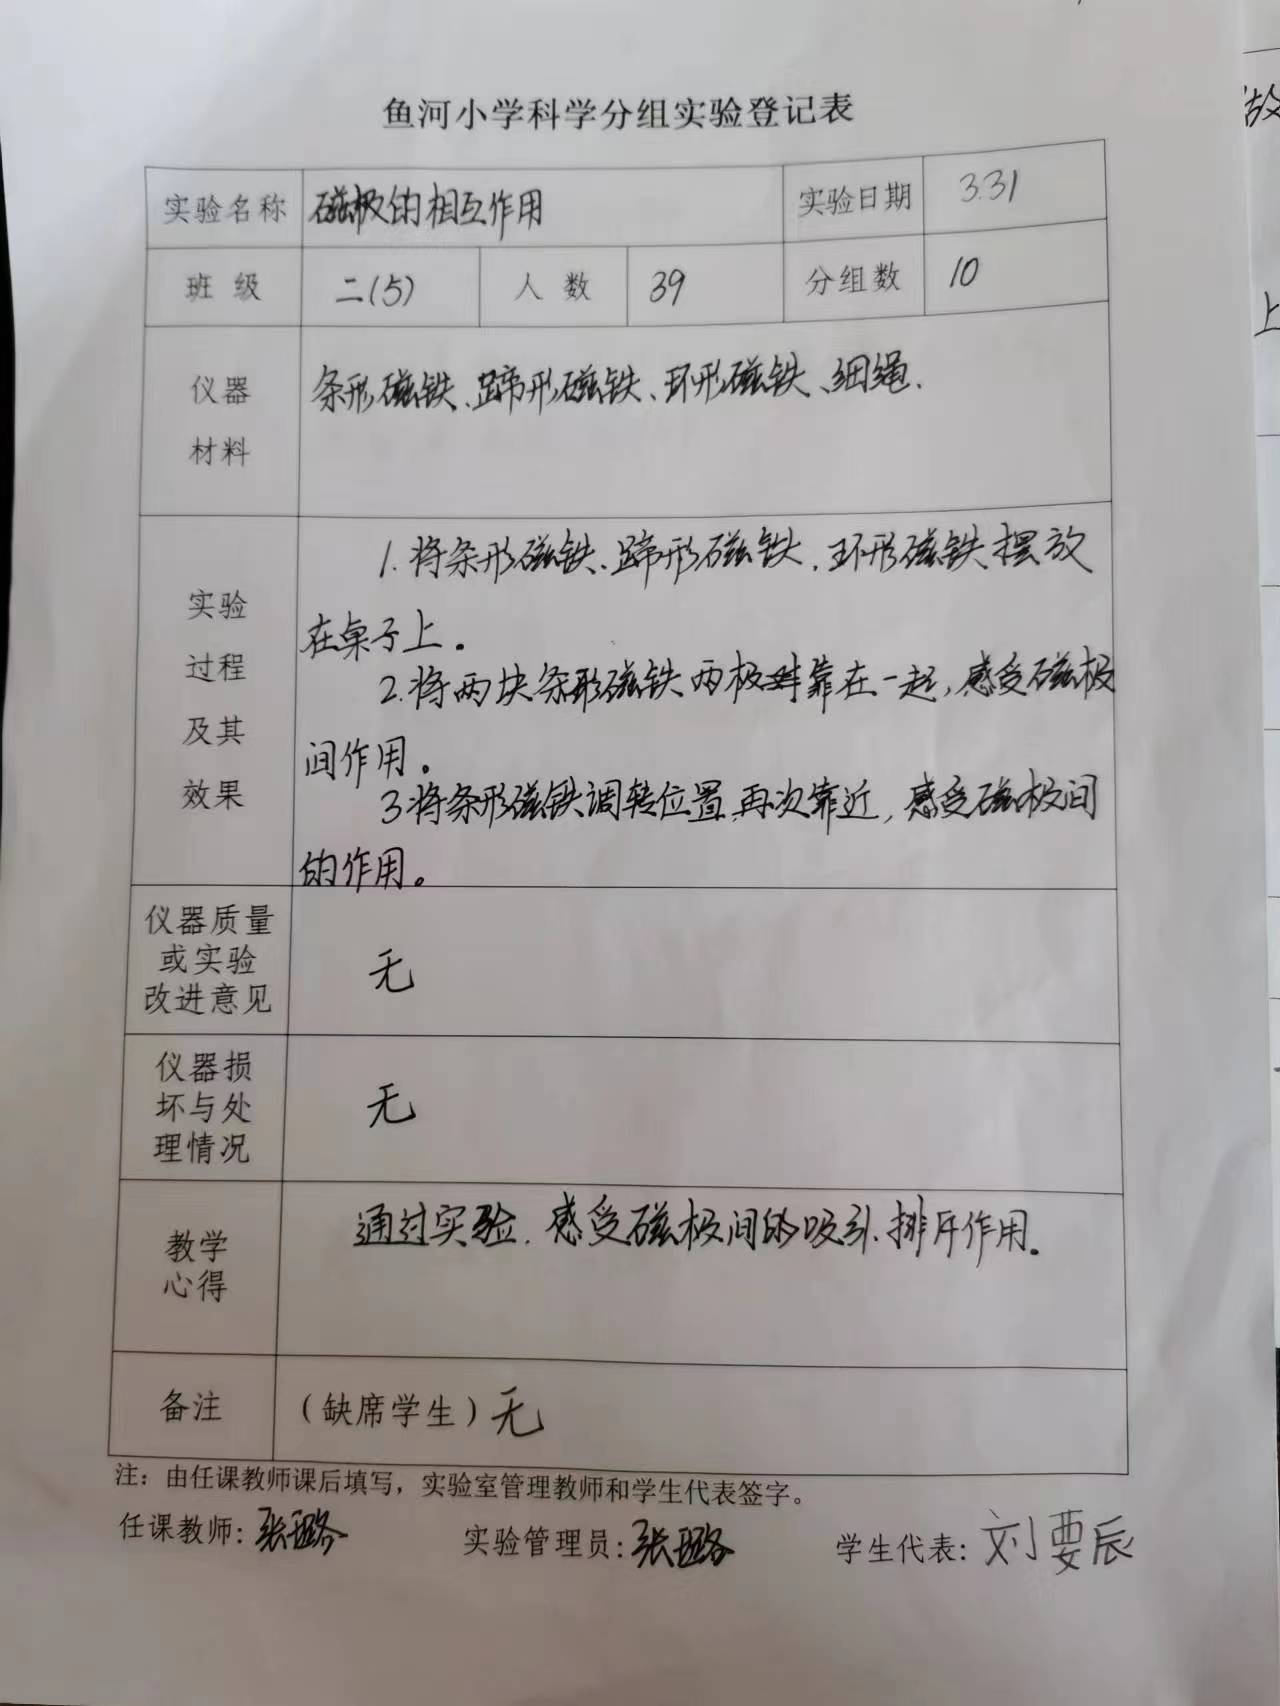 鱼河小学科学分组实验登记表
实验名称 磁极的相互作用 实验日期 3.31
班级 二(5) 人数 39 分组数 10
仪器
材料
条形磁铁、蹄形磁铁、环形磁铁、细绳.
实验
过程
及其
效果
1.将条形磁铁、蹄形磁铁、环形磁铁摆放
在桌子上。
2.将两块条形磁铁两极靠在一起,感受磁极
间作用。
3将条形磁铁调转位置,再次靠近,感受磁极间
的作用。
仪器质量
或实验
改进意见
无
仪器损
坏与处
理情况
无
教学
心得
通过实验.感受磁极间的吸引、排斥作用.
备注 (缺席学生)无
注:由任课教师课后填写,实验室管理教师和学生代表签字。
任课教师:张璐 实验管理员:张璐 学生代表:刘要辰
放
上